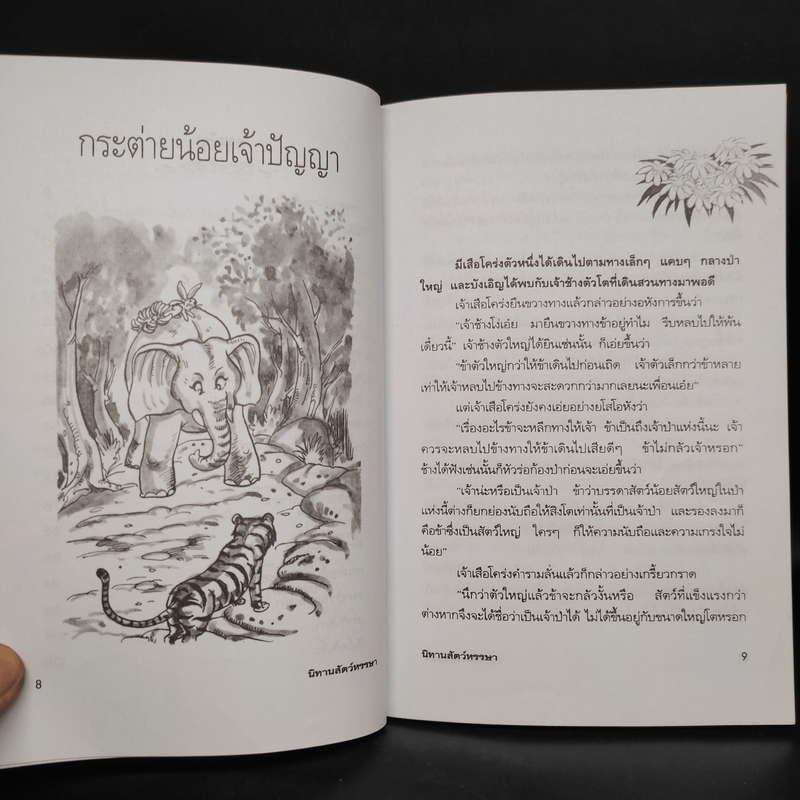 กระต่ายน้อยเจ้าปัญญา
นิทานสัตว์หรรษา
8
มีเสือโคร่งตัวหนึ่งได้เดินไปตามทางเล็กๆ แคบๆ กลางป่า
ใหญ่ และบังเอิญได้พบกับเจ้าช้างตัวโตที่เดินสวนทางมาพอดี
เจ้าเสือโคร่งยืนขวางทางแล้วกล่าวอย่างอหังการขึ้นว่า
"เจ้าช้างโง่เอ๋ย มายืนขวางทางข้าอยู่ทำไม รีบหลบไปให้พ้น
เดี๋ยวนี้" เจ้าช้างตัวใหญ่ได้ยินเช่นนั้น ก็เอ่ยขึ้นว่า
"ข้าตัวใหญ่กว่าให้ข้าเดินไปก่อนเถิด เจ้าตัวเล็กกว่าข้าหลาย
เท่าให้เจ้าหลบไปข้างทางจะสะดวกกว่ามากเลยนะเพื่อนเอ๋ย"
แต่เจ้าเสือโคร่งยังคงเอ่ยอย่างยโสโอหังว่า
"เรื่องอะไรข้าจะหลีกทางให้เจ้า ข้าเป็นถึงเจ้าป่าแห่งนี้นะ เจ้า
ควรจะหลบไปข้างทางให้ข้าเดินไปเสียดีๆ ข้าไม่กลัวเจ้าหรอก"
ช้างได้ฟังเช่นนั้นก็หัวร่อก้องป่าก่อนจะเอ่ยขึ้นว่า
"เจ้าน่ะหรือเป็นเจ้าป่า ข้าว่าบรรดาสัตว์น้อยสัตว์ใหญ่ในป่า
แห่งนี้ต่างก็ยกย่องนับถือให้สิงโตเท่านั้นที่เป็นเจ้าป่า และรองลงมาก็
คือข้าซึ่งเป็นสัตว์ใหญ่ ใครๆ ก็ให้ความนับถือและความเกรงใจไม่
น้อย"
เจ้าเสือโคร่งคำรามลั่นแล้วก็กล่าวอย่างเกรี้ยวกราด
"นึกว่าตัวใหญ่แล้วข้าจะกลัวงั้นหรือ สัตว์ที่แข็งแรงกว่า
ต่างหากจึงจะได้ชื่อว่าเป็นเจ้าป่าได้ ไม่ได้ขึ้นอยู่กับขนาดใหญ่โตหรอก
นิทานสัตว์หรรษา
9